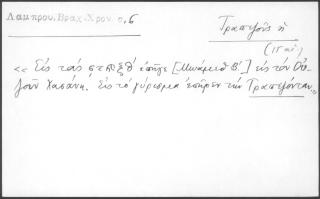 Λαμπρου, Βραχ. Χρον. σ, 6
Τραπεζοῦς ἡ
« Εἰς τοὺς ͵ϛπξθʹ ἐπῆγε [Μωάμεθ Βʹ.] εἰς τὸν Οὐ-
ζοῦν Χασάνη. Εἰς τὸ γύρισμα ἐπῆρεν τὴν Τραπεζόνταν.»